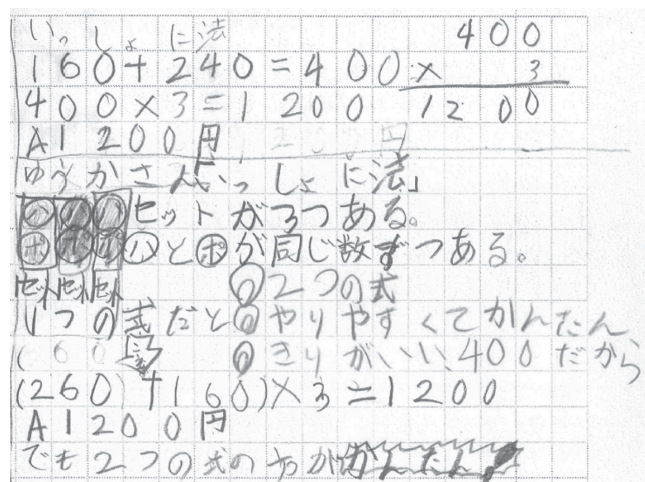 いっしょに法
160+240=400
400
× 3
1200
400×3=1200
A1200円
ゆうかさん「いっしょに法」
ハ ハ ハ セットが3つある。
ポ ポ ポ ハとポが同じ数ずつある。
セット セット セット
2つの式
1つの式だと
やりやすくてかんたん
きりがいい400だから
(260+160)×3=1200
A1200円
でも2つの式の方がかんたん